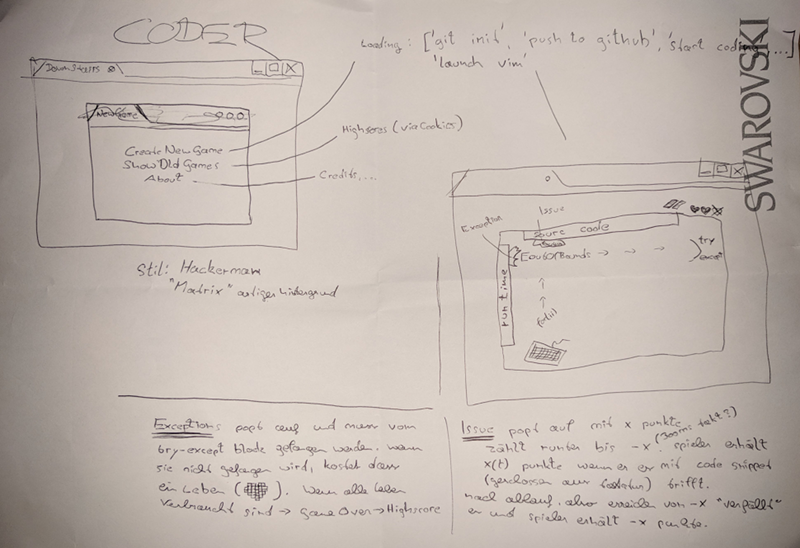 CODER
Loading: ['git init', 'push to github', 'start coding', ...]
'launch vim'
SWAROVSKI
DownStairs
New Game
Create New Game
Show Old Games
About
Highscores (via Cookies)
Credits,...
Stil: Hackerman
"Matrix" artiger hintergrund
Issue
Exception
source code
EoutOfBounds
try
except
runtime
Exceptions popt auf und muss vom
try-except block gefangen werden. wenn
sie nicht gefangen wird, kostet dass
ein Leben ( ). Wenn alle Leben
verbraucht sind → Game Over → Highscore
Issue popt auf mit x punkte
zählt runter bis -x. (300ms takt?) spieler erhält
x(t) punkte wenn er er mit code snippet
(geschossen aus tastatur) trifft.
nach ablauf, also erreichen von -x "verfällt"
er und spieler erhält -x punkte.